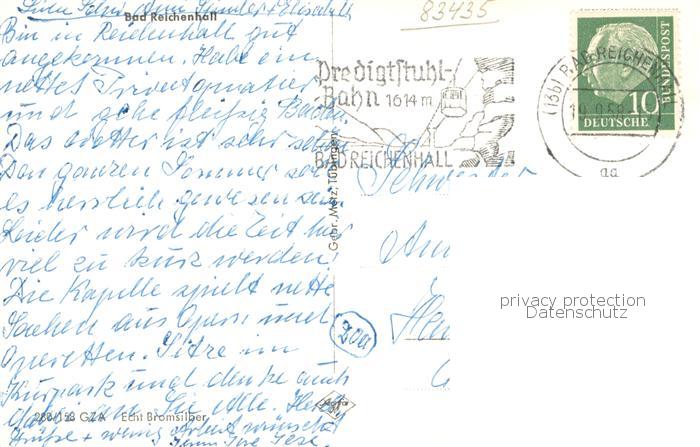 83435
Bad Reichenhall
Bin in Reichenhall gut
angekommen. Habe ein
nettes Privatquartier
und gehe fleißig Baden.
Das Wetter ist sehr schön
Den ganzen Sommer soll
es herrlich gewesen sein.
Leider wird die Zeit hier
viel zu kurz werden.
Die Kapelle spielt nette
Sachen aus Opern und
Operetten. Sitze im
Kurpark und denke auch
an Sie Alle.
280/158 GZA Echt Bromsilber
Grüße + wenig Arbeit wünscht
Gebr. Metz, Tübingen
Predigtstuhl-
Bahn 1614 m
BAD REICHENHALL
(13b) BAD REICHENH
aa
10
DEUTSCHE
BUNDESPOST
Schwester
20a
privacy protection
Datenschutz